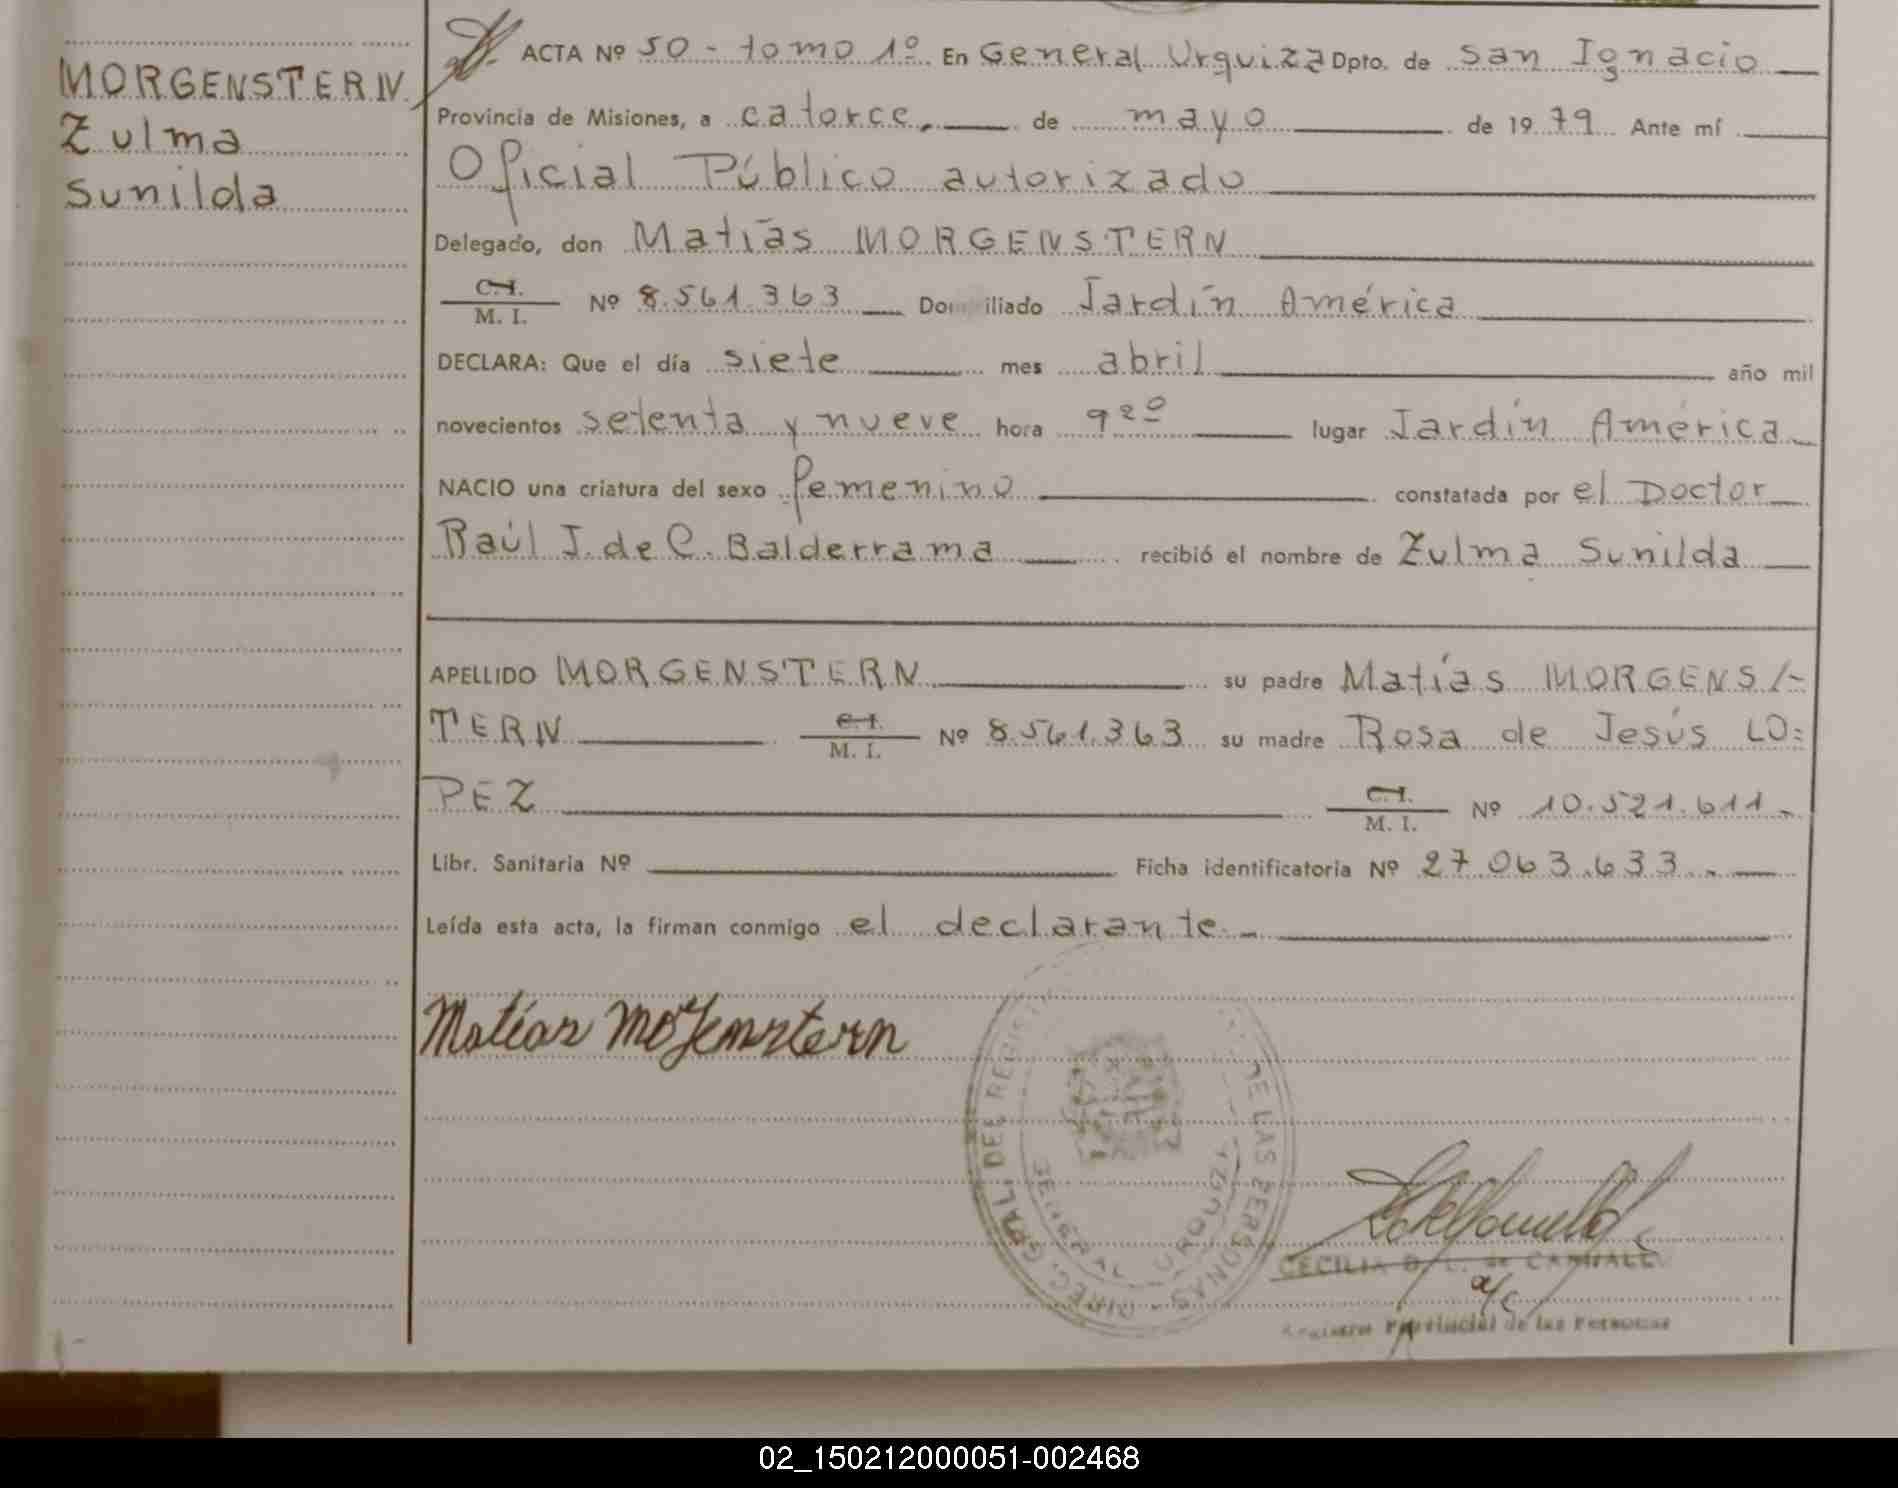 MORGENSTERN
Zulma
Sunilda
ACTA Nº 50 - tomo 1º En General Urquiza Dpto. de San Ignacio
Provincia de Misiones, a catorce, de mayo de 1979 Ante mí
Oficial Público autorizado
Delegado, don Matías MORGENSTERN
C.I. / M. I. Nº 8.561.363 Domiciliado Jardín América
DECLARA: Que el día siete mes abril año mil
novecientos setenta y nueve hora 9 20 lugar Jardín América
NACIO una criatura del sexo femenino constatada por el Doctor
Raúl J. de C. Balderrama recibió el nombre de Zulma Sunilda
APELLIDO MORGENSTERN su padre Matías MORGENS/-
TERN C.I. / M. I. Nº 8.561.363 su madre Rosa de Jesús LO=
PEZ C.I. / M. I. Nº 10.521.611.-
Libr. Sanitaria Nº Ficha identificatoria Nº 27.063.633.-
Leída esta acta, la firman conmigo el declarante.-
Matías Morgenstern
DIREC. GRAL. DEL REGIST DE LAS PERSONAS
GENERAL URQUIZA
CECILIA D. L. de
a/c
Registro Provincial de las Personas
02_150212000051-002468